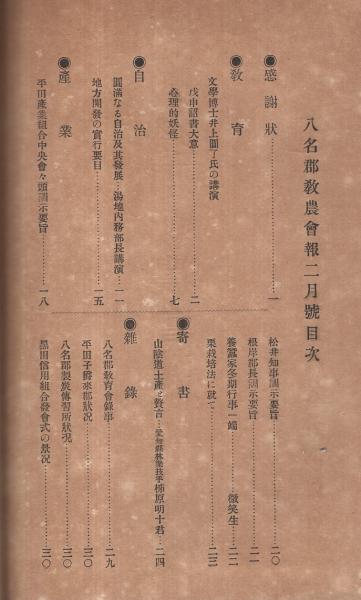 八名郡敎農會報二月號目次
●感謝狀……一
●敎育
文學博士井上圓了氏の講演
戊申詔書大意……二
心理的妖怪……七
●自治
圓滿なる自治及其發展…湯地內務部長講演…一一
地方開發の實行要目……一五
●產業
平田產業組合中央會々頭訓示要旨……一八
松井知事訓示要旨……二〇
根岸郡長訓示要旨……二一
養蠶家冬期行事一端……微笑生…二二
栗栽培法に就て……二三
●寄書
山陰道土產と贅言…愛知縣林業技手 梯原明十君…二四
●雜錄
八名郡敎育會錄事……二九
平田子爵來郡狀況……三〇
八名郡製炭傳習所狀況……三〇
黑田信用組合發會式の景況……三〇